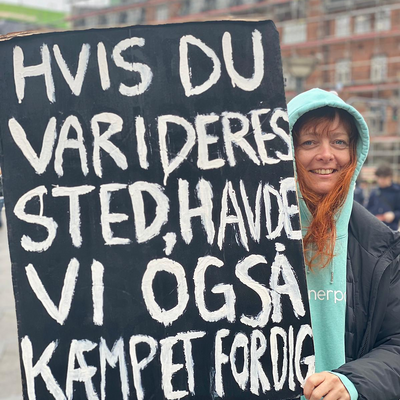 HVIS DU
VAR I DERES
STED, HAVDE
VI OGSÅ
KÆMPET FOR DIG